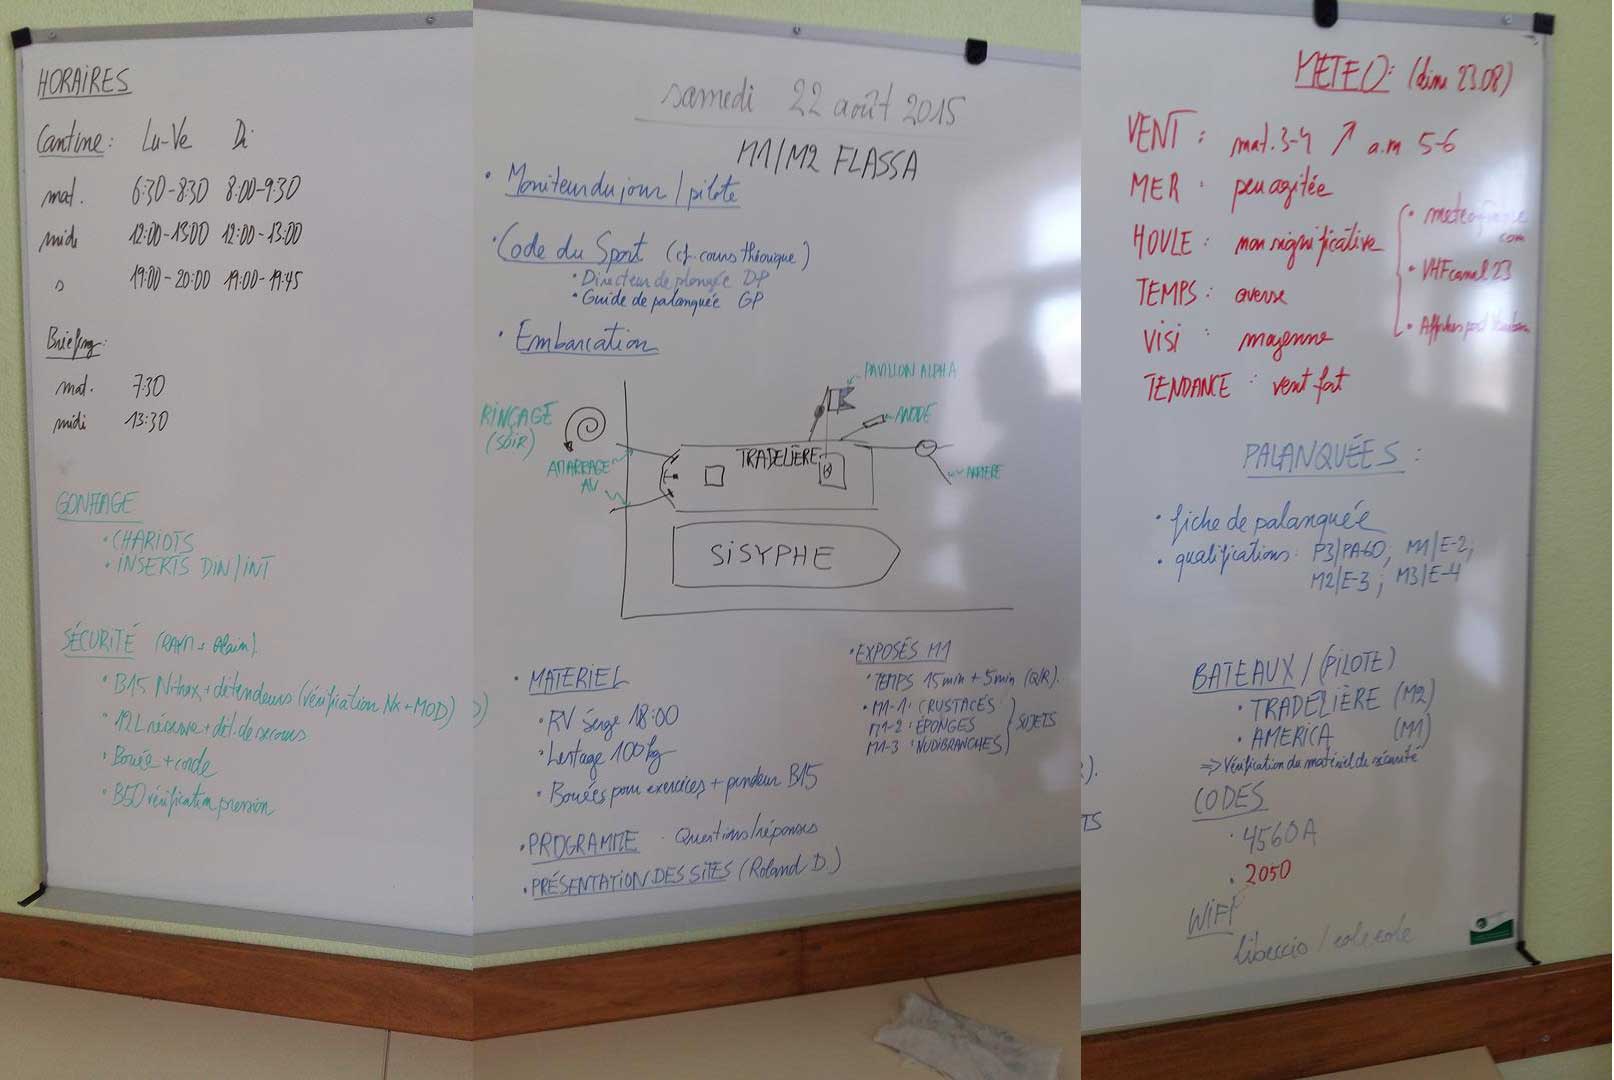 HORAIRES
Cantine: Lu-Ve Di
mat. 6:30-8:30 8:00-9:30
midi 12:00-13:00 12:00-13:00
s 19:00-20:00 19:00-19:45
Briefing:
mat. 7:30
midi 13:30
GONFLAGE
• CHARIOTS
• INSERTS DIN/INT
SÉCURITÉ (RAYM + Alain)
• B15 Nitrox + détendeurs (vérification Nx + MOD)
• 12L réserve + dét. de secours
• Bouée + corde
• B50 vérification pression
samedi 22 août 2015
M1/M2 FLASSA
• Moniteur du jour / pilote
• Code du Sport (cf. cours théorique)
• Directeur de plongée DP
• Guide de palanquée GP
• Embarcation
PAVILLON ALPHA
RINÇAGE
(SOIR)
ANODE
AMARRAGE
AV
TRADELIÈRE
ARRIERE
SISYPHE
• MATERIEL
• RV Serge 18:00
• Lestage 100 kg
• Bouées pour exercices + pendeur B15
• PROGRAMME - Questions/réponses
• PRÉSENTATION DES SITES (Roland D.)
• EXPOSÉS M1
• TEMPS 15min + 5min (Q/R).
• M1-1: CRUSTACÉS
M1-2: ÉPONGES
M1-3: NUDIBRANCHES
SUJETS
METEO: (dim 23.08)
VENT: mat. 3-4 ↗ a.m 5-6
MER: peu agitée
HOULE: non significative
TEMPS: averse
VISI: moyenne
TENDANCE: vent fort
• meteofrance
com
• VHF canal 23
PALANQUÉES:
• fiche de palanquée
• qualifications: P3/PA60; M1/E-2;
M2/E-3; M3/E-4
BATEAUX / (PILOTE)
• TRADELIÈRE (M2)
• AMERICA (M1)
=> Vérification du matériel de sécurité
CODES
• 4560A
• 2050
WIFI
libeccio /